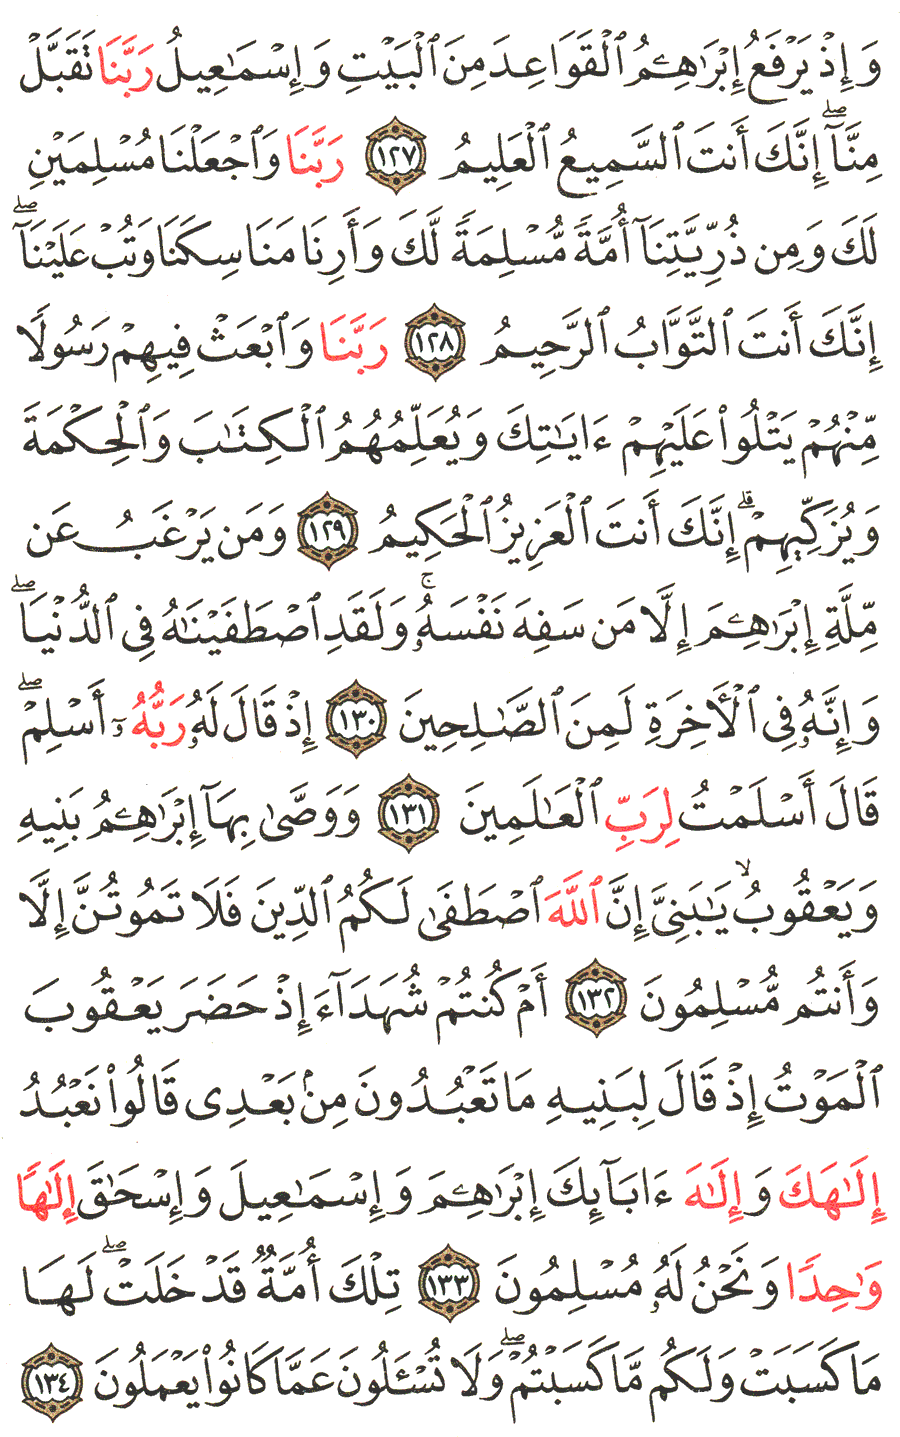 وَإِذْ يَرْفَعُ إِبْرَٰهِـۧمُ ٱلْقَوَاعِدَ مِنَ ٱلْبَيْتِ وَإِسْمَـٰعِيلُ رَبَّنَا تَقَبَّلْ
مِنَّآ ۖ إِنَّكَ أَنتَ ٱلسَّمِيعُ ٱلْعَلِيمُ ١٢٧ رَبَّنَا وَٱجْعَلْنَا مُسْلِمَيْنِ
لَكَ وَمِن ذُرِّيَّتِنَآ أُمَّةً مُّسْلِمَةً لَّكَ وَأَرِنَا مَنَاسِكَنَا وَتُبْ عَلَيْنَآ ۖ
إِنَّكَ أَنتَ ٱلتَّوَّابُ ٱلرَّحِيمُ ١٢٨ رَبَّنَا وَٱبْعَثْ فِيهِمْ رَسُولًا
مِّنْهُمْ يَتْلُوا۟ عَلَيْهِمْ ءَايَـٰتِكَ وَيُعَلِّمُهُمُ ٱلْكِتَـٰبَ وَٱلْحِكْمَةَ
وَيُزَكِّيهِمْ ۚ إِنَّكَ أَنتَ ٱلْعَزِيزُ ٱلْحَكِيمُ ١٢٩ وَمَن يَرْغَبُ عَن
مِّلَّةِ إِبْرَٰهِـۧمَ إِلَّا مَن سَفِهَ نَفْسَهُۥ ۚ وَلَقَدِ ٱصْطَفَيْنَـٰهُ فِى ٱلدُّنْيَا ۖ
وَإِنَّهُۥ فِى ٱلْـَٔاخِرَةِ لَمِنَ ٱلصَّـٰلِحِينَ ١٣٠ إِذْ قَالَ لَهُۥ رَبُّهُۥٓ أَسْلِمْ ۖ
قَالَ أَسْلَمْتُ لِرَبِّ ٱلْعَـٰلَمِينَ ١٣١ وَوَصَّىٰ بِهَآ إِبْرَٰهِـۧمُ بَنِيهِ
وَيَعْقُوبُ ۙ يَـٰبَنِىَّ إِنَّ ٱللَّهَ ٱصْطَفَىٰ لَكُمُ ٱلدِّينَ فَلَا تَمُوتُنَّ إِلَّا
وَأَنتُم مُّسْلِمُونَ ١٣٢ أَمْ كُنتُمْ شُهَدَآءَ إِذْ حَضَرَ يَعْقُوبَ
ٱلْمَوْتُ إِذْ قَالَ لِبَنِيهِ مَا تَعْبُدُونَ مِنۢ بَعْدِى قَالُوا۟ نَعْبُدُ
إِلَـٰهَكَ وَإِلَـٰهَ ءَابَآئِكَ إِبْرَٰهِـۧمَ وَإِسْمَـٰعِيلَ وَإِسْحَـٰقَ إِلَـٰهًا
وَٰحِدًا وَنَحْنُ لَهُۥ مُسْلِمُونَ ١٣٣ تِلْكَ أُمَّةٌ قَدْ خَلَتْ ۖ لَهَا
مَا كَسَبَتْ وَلَكُم مَّا كَسَبْتُمْ ۖ وَلَا تُسْـَٔلُونَ عَمَّا كَانُوا۟ يَعْمَلُونَ ١٣٤